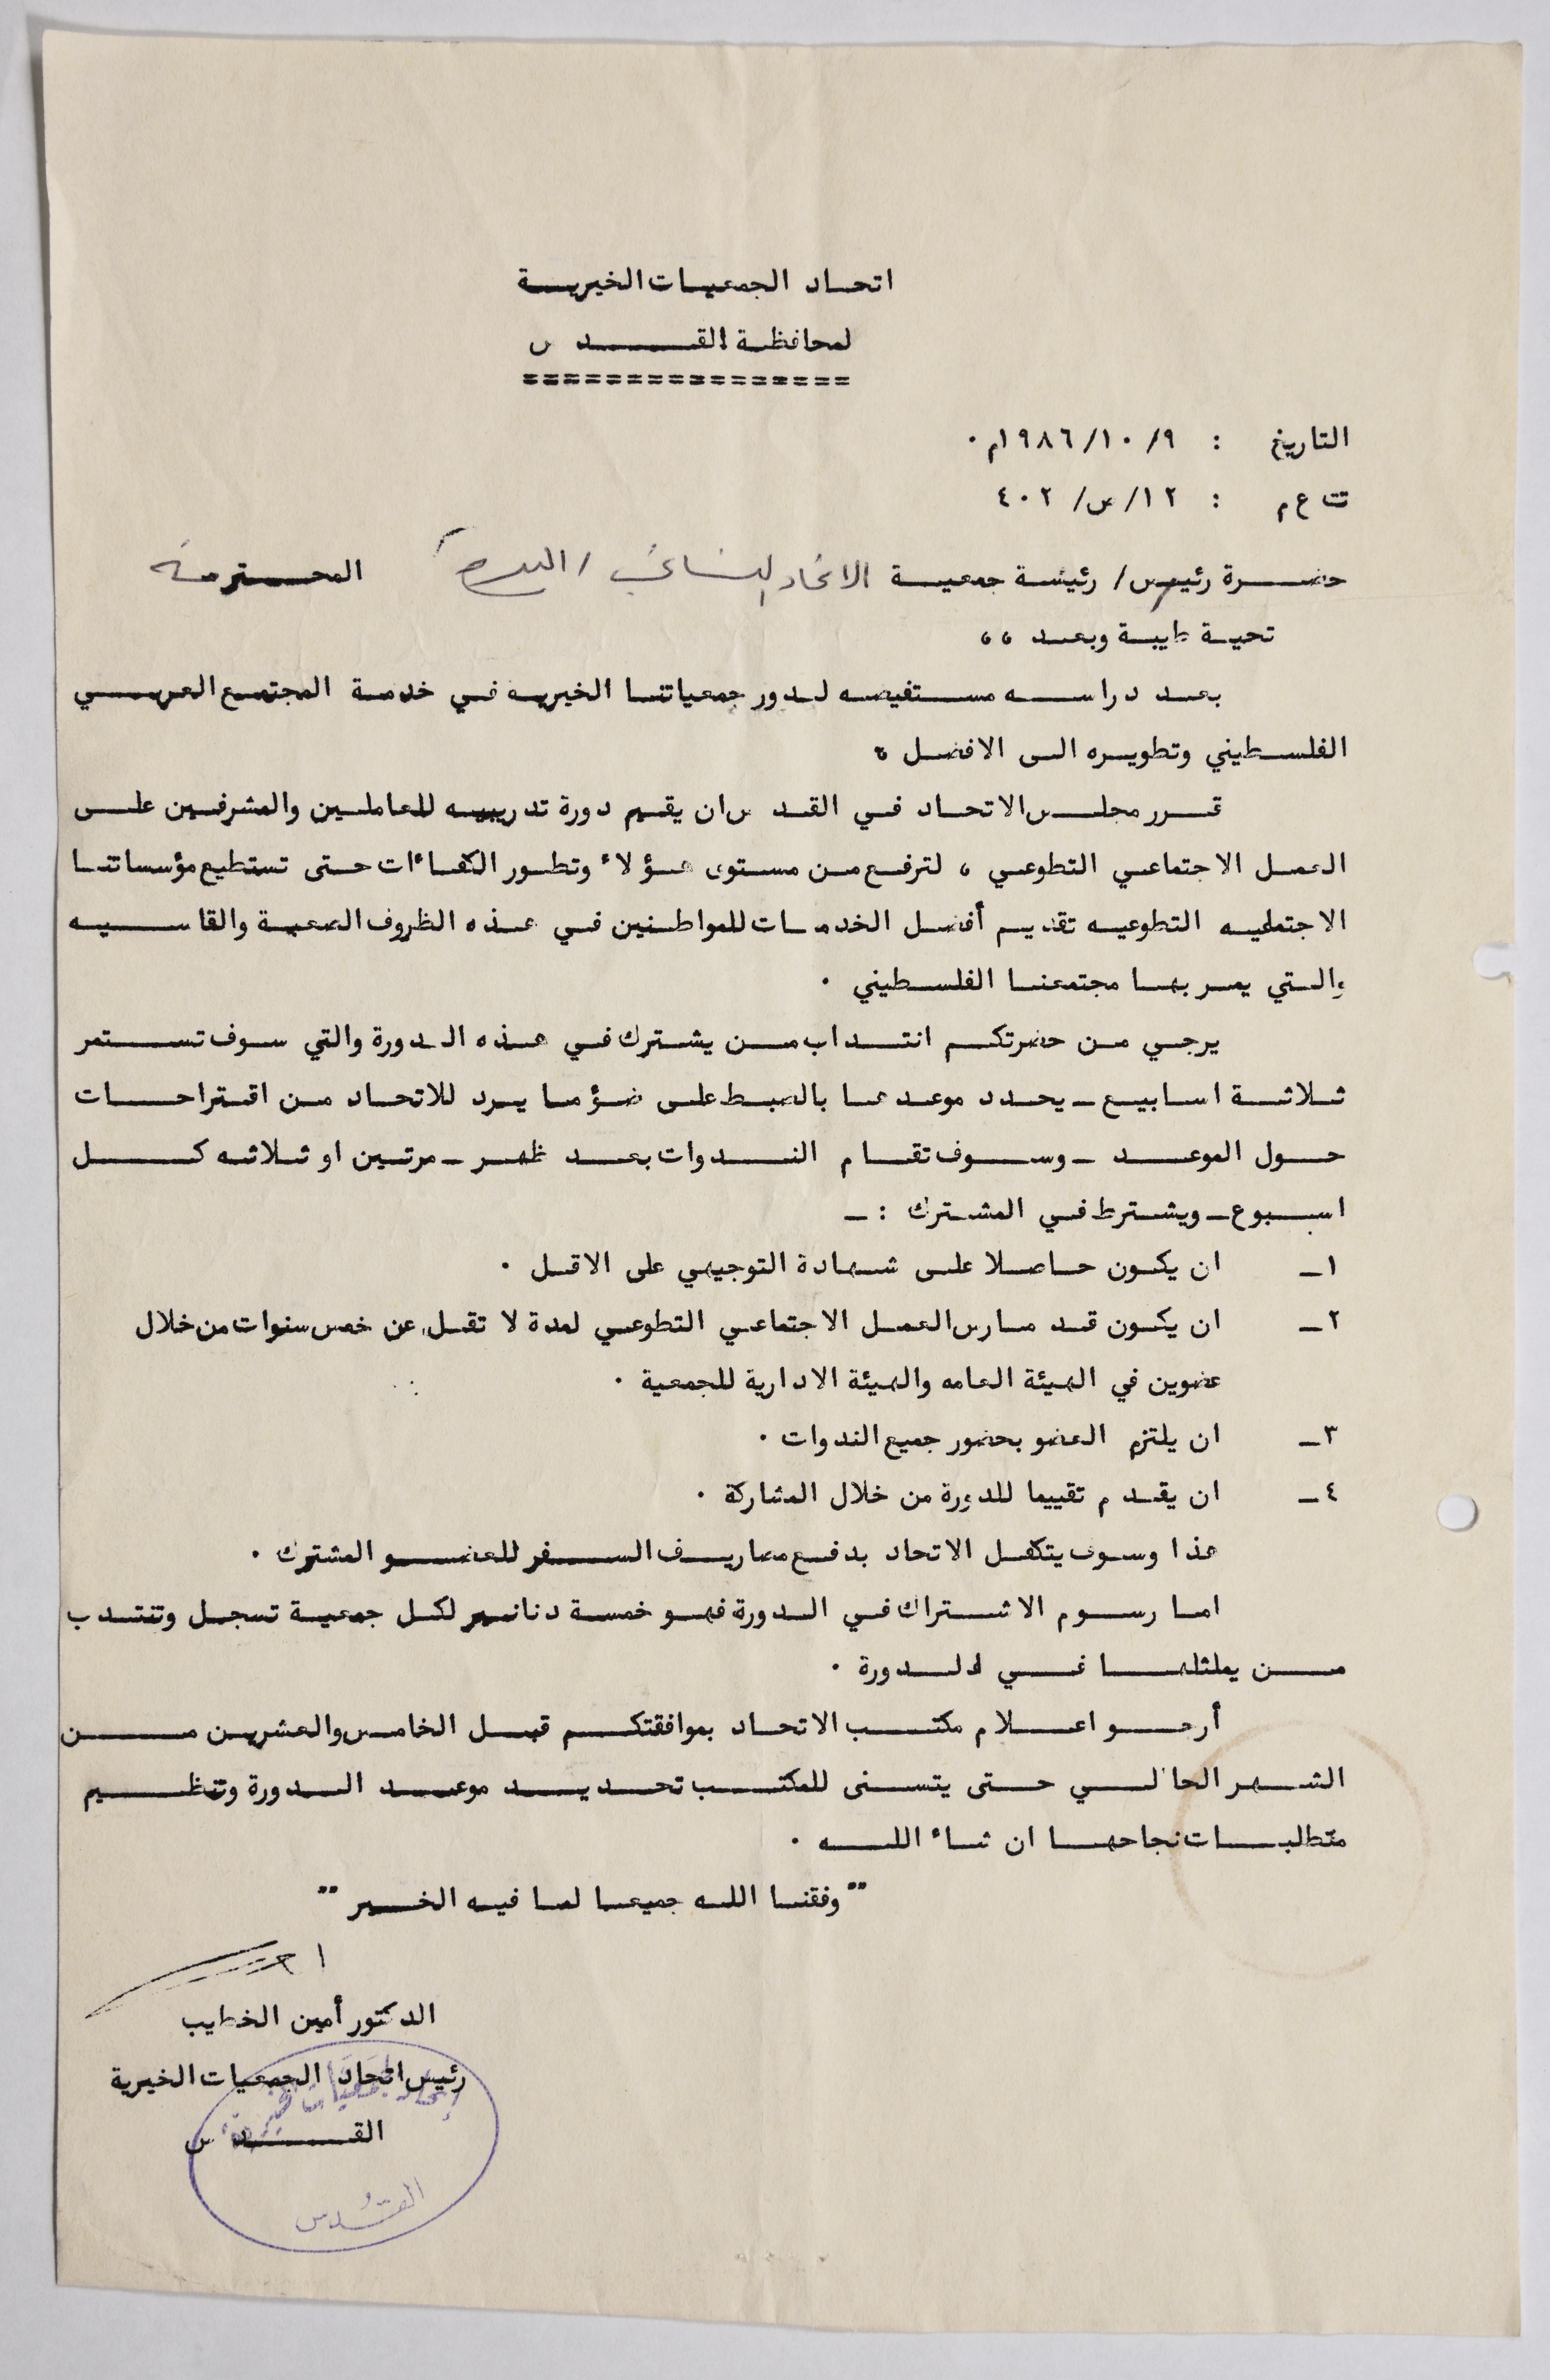 اتحاد الجمعيات الخيرية
لمحافظة القدس
================
التاريخ : ٩/ ١٠/ ١٩٨٦م ٠
تت ع م : ١٢/ س/ ٤٠٢
حضرة رئيس/ رئيسة جمعية الاتحاد النسائي / البيرة المحترمة
تحية طيبة وبعد ،،
بعد دراسه مستفيضه لدور جمعياتنا الخيريه في خدمة المجتمع العربي
الفلسطيني وتطويره الى الافضل ،
قرر مجلس الاتحاد في القدس ان يقيم دورة تدريبيه للعاملين والمشرفين على
العمل الاجتماعي التطوعي ، لترفع من مستوى هؤلاء وتطور الكفاءات حتى تستطيع مؤسساتنا
الاجتماعيه التطوعيه تقديم أفضل الخدمات للمواطنين في هذه الظروف الصعبة والقاسيه
والتي يمر بها مجتمعنا الفلسطيني ٠
يرجي من حضرتكم انتداب من يشترك في هذه الدورة والتي سوف تستمر
ثلاثة اسابيع ـ يحدد موعدها بالضبط على ضؤ ما يرد للاتحاد من اقتراحات
حول الموعد ـ وسوف تقام الندوات بعد ظهر ـ مرتين او ثلاثه كل
اسبوع ـ ويشترط في المشترك : ـ
١ـ ان يكون حاصلا على شهادة التوجيهي على الاقل ٠
٢ـ ان يكون قد مارس العمل الاجتماعي التطوعي لمدة لا تقل عن خمس سنوات من خلال
عضوين في الهيئة العامه والهيئة الادارية للجمعية ٠
٣ـ ان يلتزم العضو بحضور جميع الندوات ٠
٤ـ ان يقدم تقييما للدورة من خلال المشاركة ٠
هذا وسوف يتكفل الاتحاد بدفع مصاريف السفر للعضو المشترك ٠
اما رسوم الاشتراك في الدورة فهو خمسة دنانير لكل جمعية تسجل وتنتدب
من يمثلها في الدورة ٠
أرجو اعلام مكتب الاتحاد بموافقتكم قبل الخامس والعشرين من
الشهر الحالي حتى يتسنى للمكتب تحديد موعد الدورة وتنظيم
متطلبات نجاحها ان شاء الله ٠
"وفقنا الله جميعا لما فيه الخير"
الدكتور أمين الخطيب
رئيس اتحاد الجمعيات الخيرية
القدس
إتحاد الجمعيات الخيرية
القدس